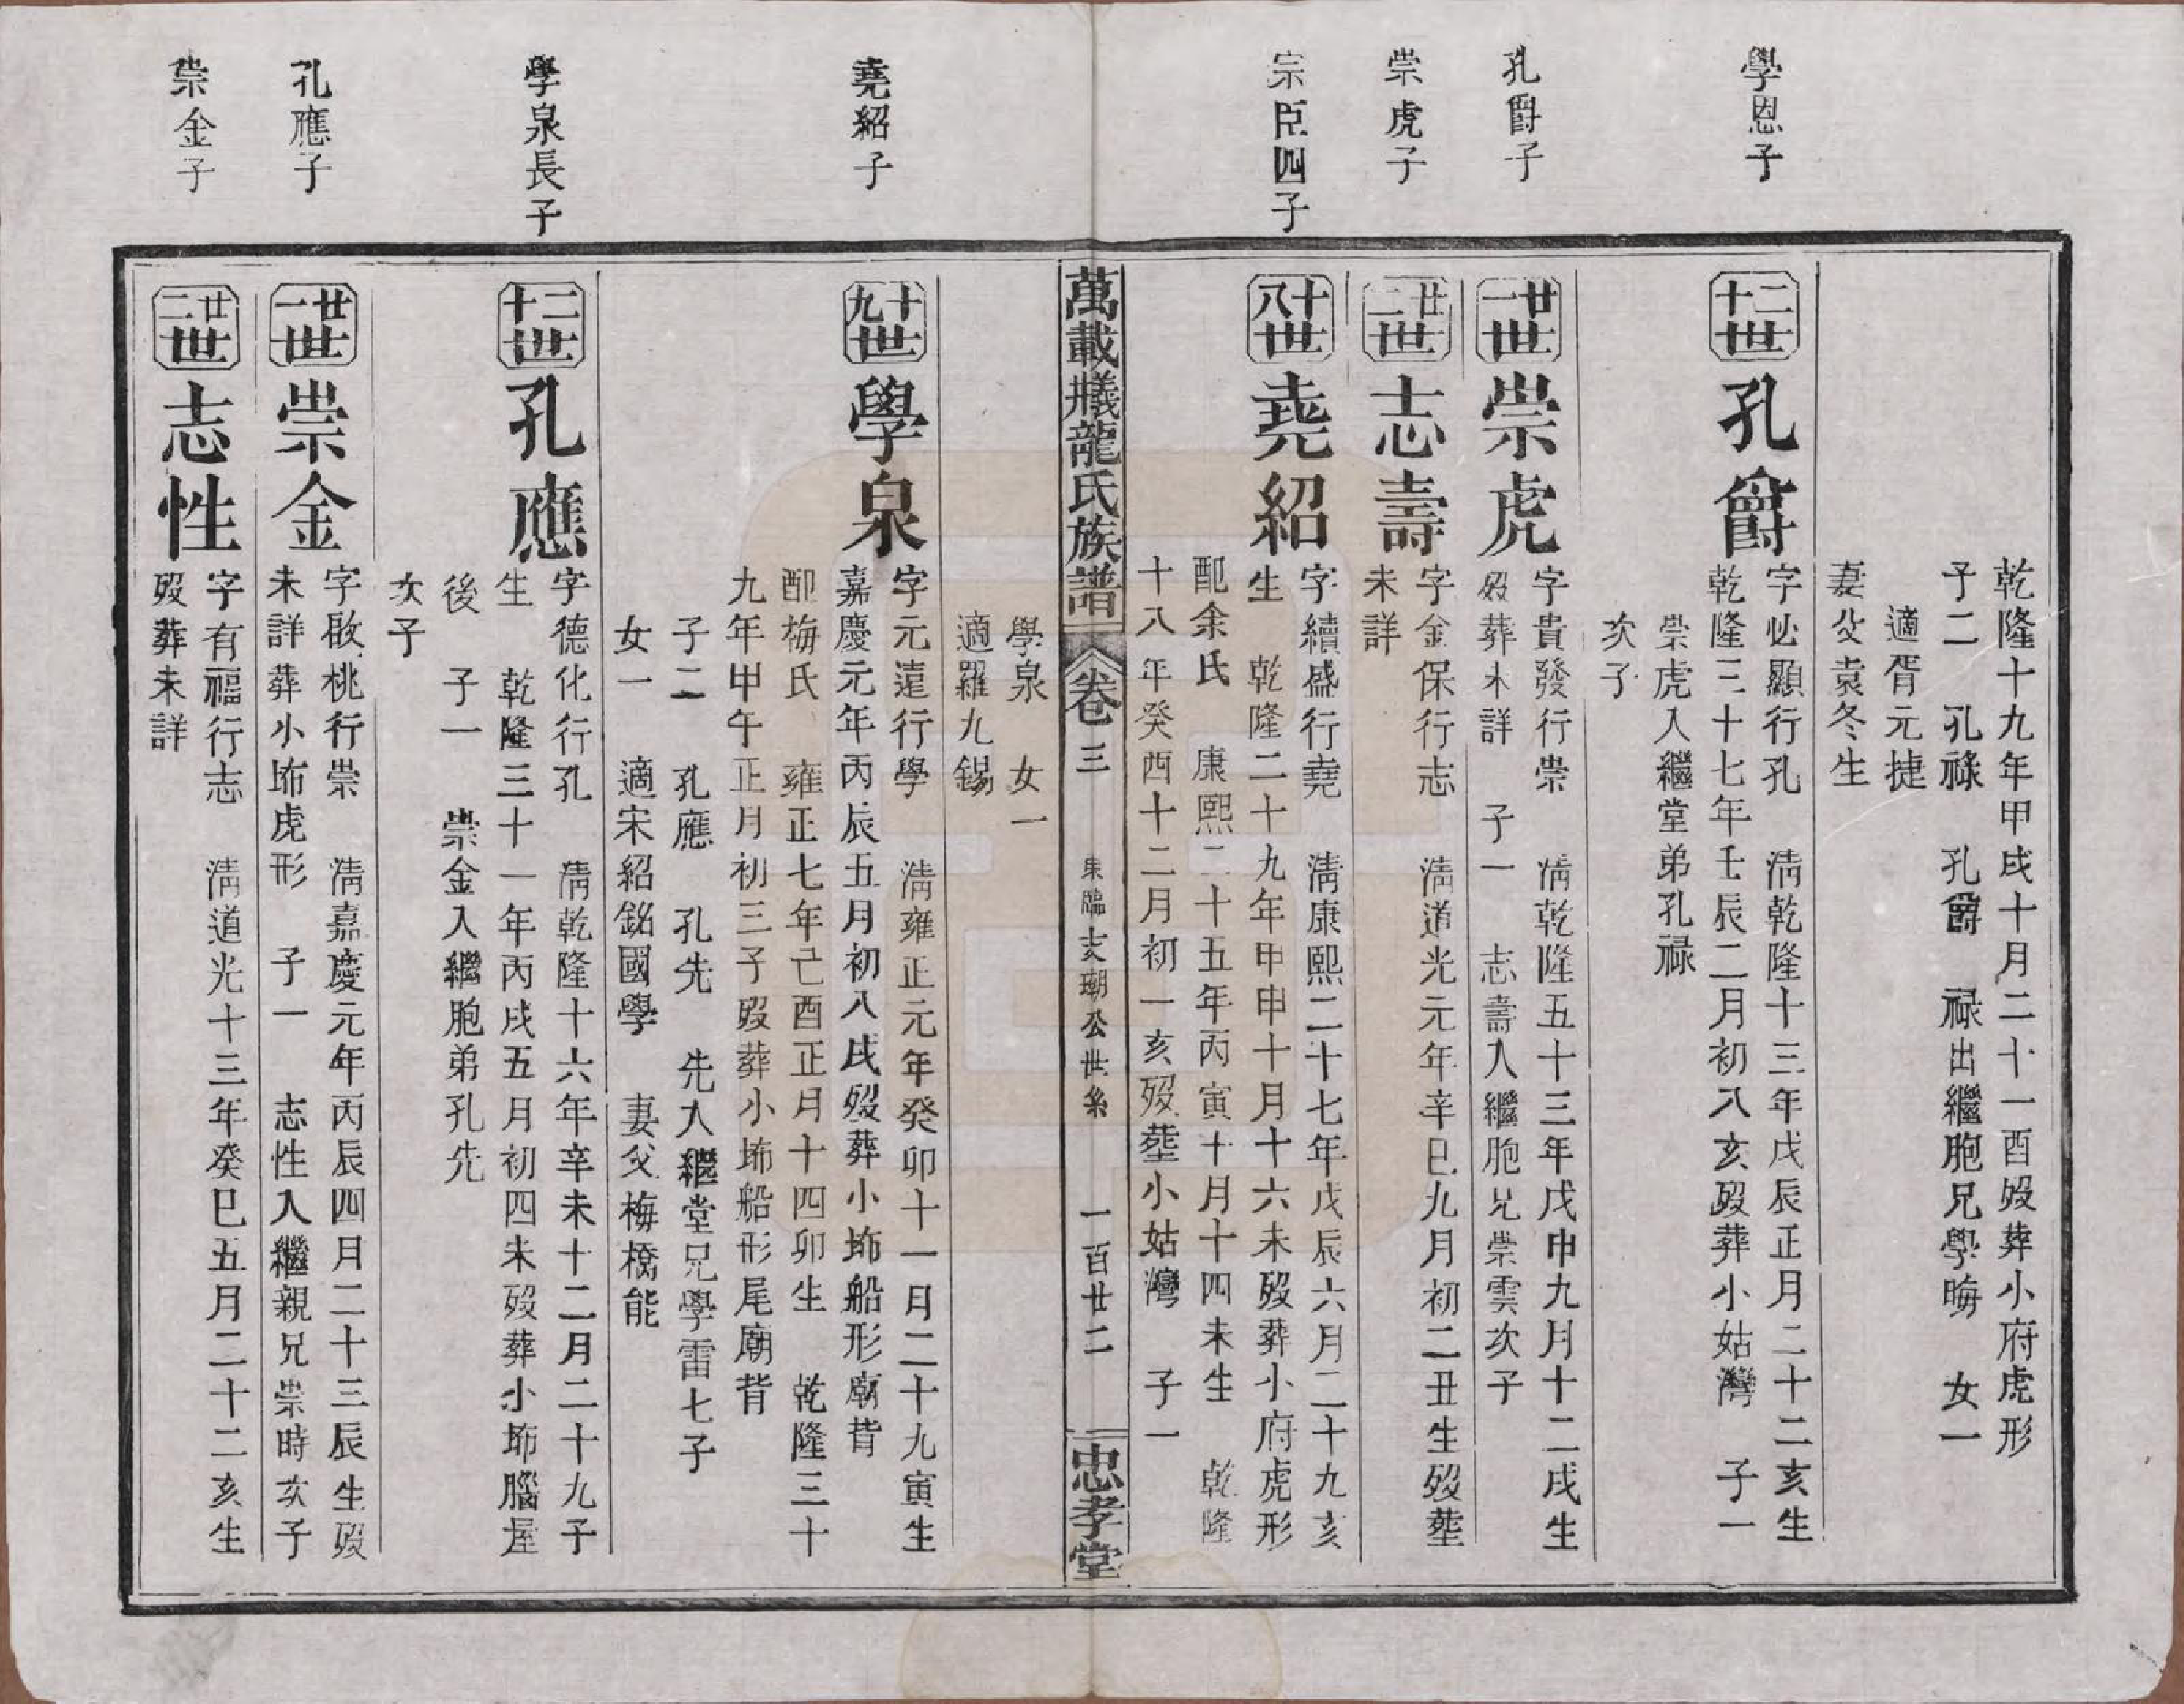 乾隆十九年甲戌十月二十一酉歿葬小府虎形
子二　孔祿　孔爵　祿出繼胞兄學晦　女一
適胥元捷
妻父袁冬生
學恩子
二十世
孔爵
字必顯行孔　清乾隆十三年戊辰正月二十二亥生
乾隆三十七年壬辰二月初八亥歿葬小姑灣　子一
崇虎入繼堂弟孔祿
次子
孔爵子
廿一世
崇虎
字貴發行崇　清乾隆五十三年戊申九月十二戌生
歿葬未詳　子一　志壽入繼胞兄崇雲次子
崇虎子
廿二世
志壽
字金保行志　清道光元年辛巳九月初二丑生歿塟
未詳
宗臣四子
十八世
堯紹
字續盛行堯　清康熙二十七年戊辰六月二十九亥
生　乾隆二十九年甲申十月十六未歿葬小府虎形
配余氏　康熙二十五年丙寅十月十四未生　乾隆
十八年癸酉十二月初一亥歿塟小姑灣　子一
萬載龍氏族譜　卷三　公世系　一百廿二　忠孝堂
學泉　女一
適羅九錫
堯紹子
十九世
學泉
字元遠行學　清雍正元年癸卯十一月二十九寅生
嘉慶元年丙辰五月初八戌歿葬小坳船形廟背
配梅氏　雍正七年己酉正月十四卯生　乾隆三十
九年甲午正月初三子歿葬小坳船形尾廟背
子二　孔應　孔先　先入繼堂兄學雷七子
女一　適宋紹銘國學　妻父梅橋能
學泉長子
二十世
孔應
字德化行孔　清乾隆十六年辛未十二月二十九子
生　乾隆三十一年丙戌五月初四未歿葬小坳腦屋
後　子一　崇金入繼胞弟孔先
次子
孔應子
廿一世
崇金
字啟桃行崇　清嘉慶元年丙辰四月二十三辰生歿
未詳葬小坳虎形　子一　志性入繼親兄崇時次子
崇金子
廿二世
志性
字有福行志　清道光十三年癸巳五月二十二亥生
歿葬未詳